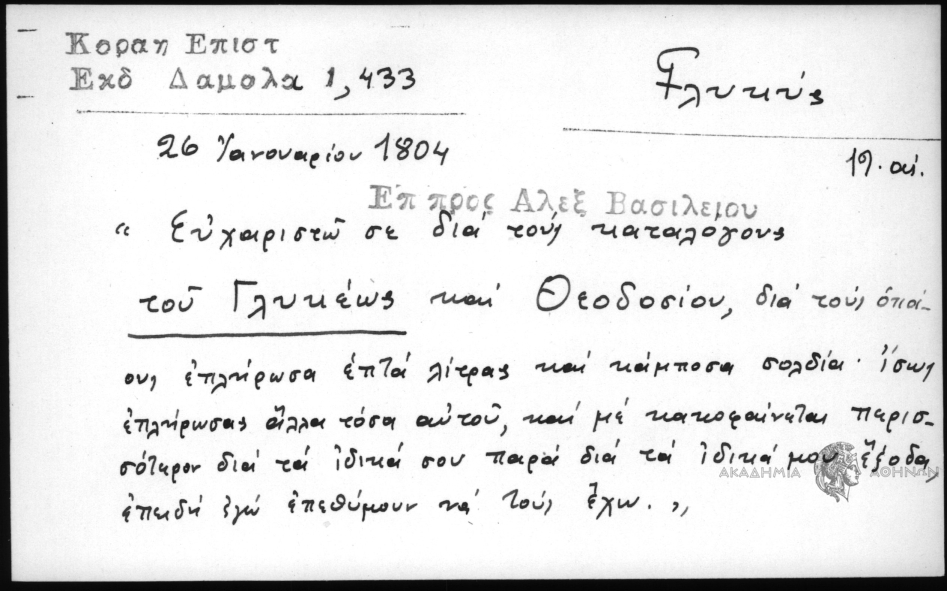 Κοραη Επιστ
Εκδ Δαμαλα 1,433
Γλυκύς
26 Ἰανουαρίου 1804
19. αἰ.
Επ προς Αλεξ Βασιλειου
“ Εὐχαριστῶ σε διά τούς καταλόγους
τοῦ Γλυκέως καί Θεοδοσίου, διά τούς ὁποί-
ους ἐπλήρωσα ἑπτά λίτρας καί κάμποσα σολδία· ἴσως
ἐπλήρωσας ἄλλα τόσα αὐτοῦ, καί μέ κακοφαίνεται περισ-
σότερον διά τά ἰδικά σου παρά διά τά ἰδικά μου ἔξοδα,
ἐπειδή ἐγώ ἐπεθύμουν νά τούς ἔχω. „
ΑΚΑΔΗΜΙΑ ΑΘΗΝΩΝ